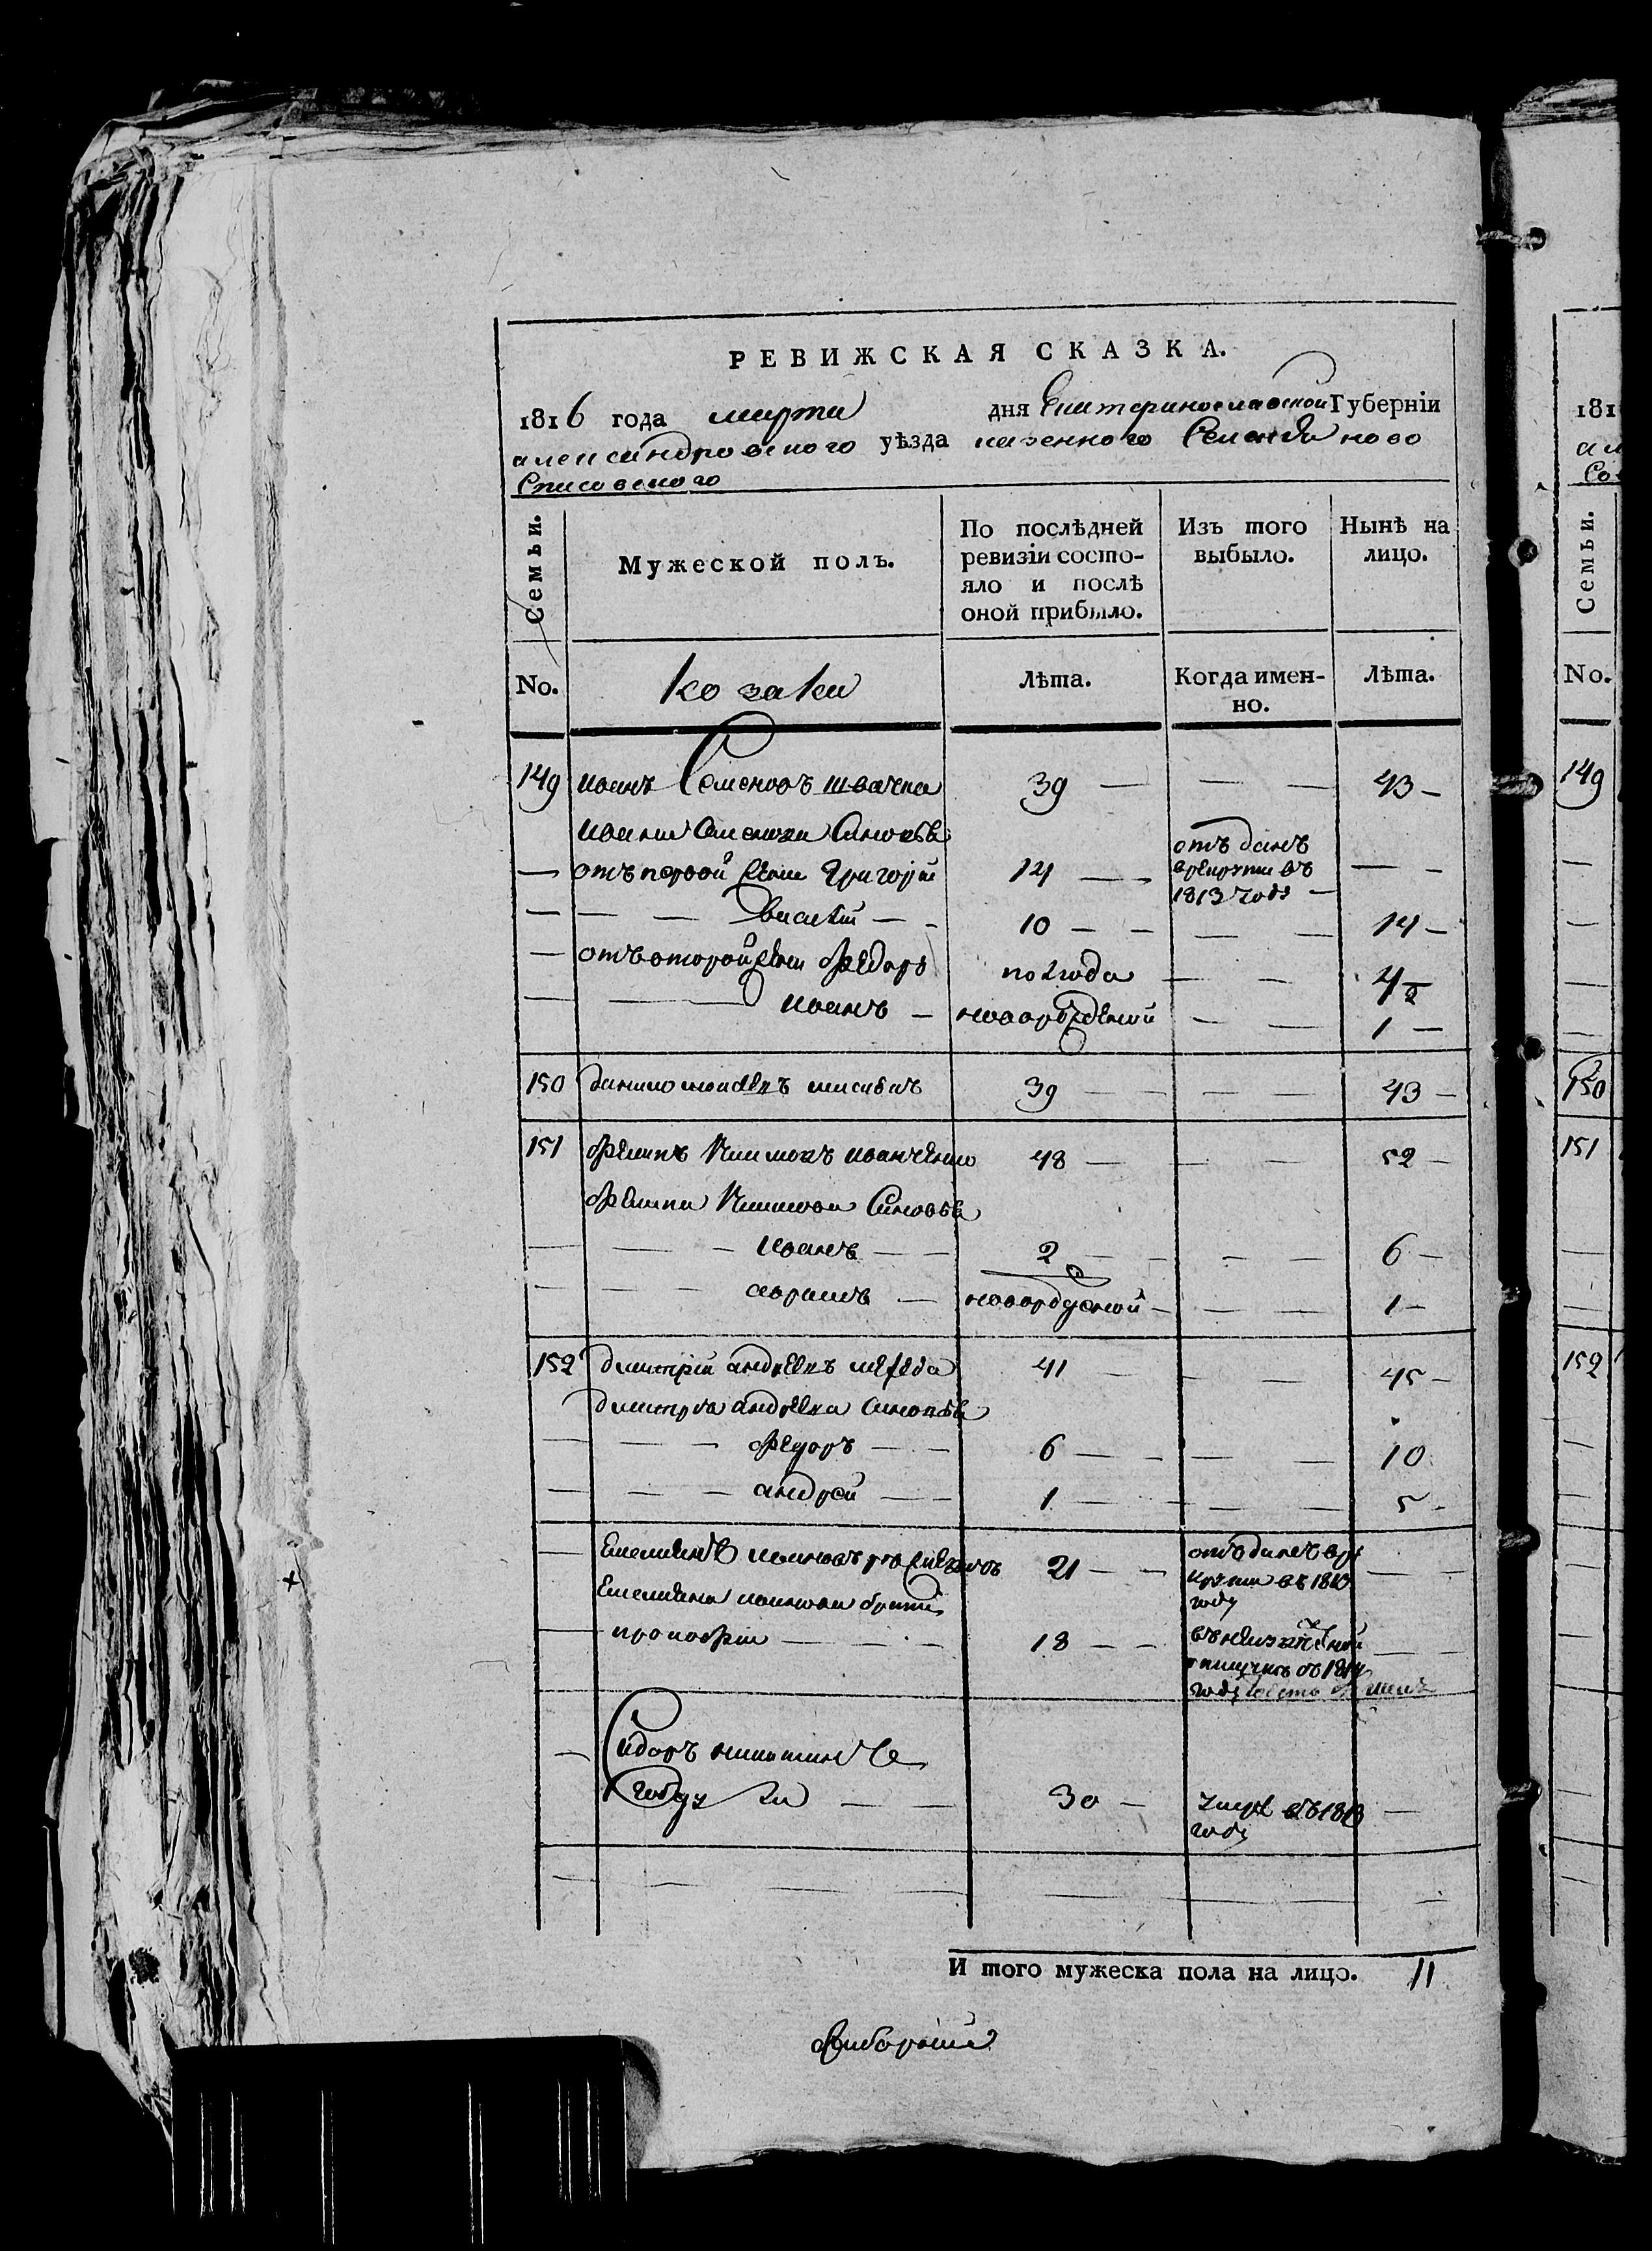 РЕВИЖСКАЯ СКАЗКА.
1816 года марта дня Екатеринославской Губерніи
александровского уѣзда казенного Селенія ново
Спасовского
Семьи. Мужеской полъ. По послѣдней ревизіи состояло и послѣ оной прибыло. Изъ того выбыло. Нынѣ на лицо.
No. козаки Лѣта. Когда именно. Лѣта.
149 иванъ Семеновъ швачка 39 — — — 43 —
ивана Семенова Синовья
— отъ первой жени Григорій 14 — — отъданъ врекрути въ 1813 году — — —
— — — василій — — 10 — — — — 14 —
— отъвторой жени федоръ полгода — — 4½
— — иванъ — новорожденой — — 1 —
150 данило 39 — — — — 43 —
151 филипъ Климовъ иванченко 48 — — — 52 —
филипа Климова Синовья
— — — иванъ — — 2 — — — — 6 —
— — — аврамъ — новорожденой — — — 1 —
152 дмитрій андреевъ 41 — — — 45 —
дмитрія андреева Синовья
— — — федоръ — — 6 — — — — 10
— — — андрей — — 1 — — — — 5 —
— Емельянъ ивановъ 21 — — отъданъ врекрути въ 1813 году — —
Емельяна иванова братъ
— прокофій — — — 18 — — въ 1814 году — —
— Сидоръ никитинъ
30 — умре въ 1813 году —
— — — — — — —
И того мужеска пола на лицо. 11
181
No.
Семьи.
149
150
151
152